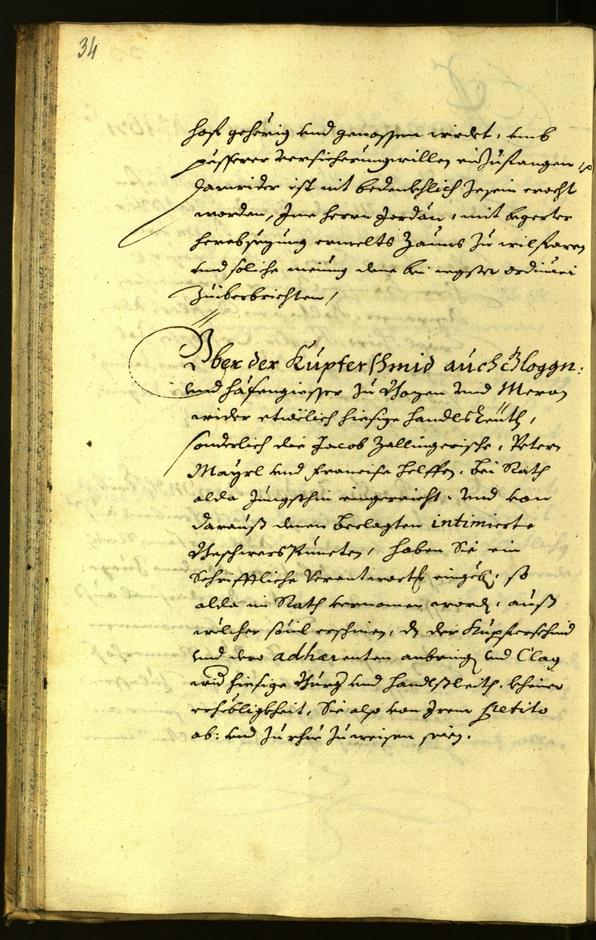 34
hoft gehörig und genossen würdet, umb
pesserer versicherung willen einzufangen, so
darwider ist nit bedenkhlich zesein eracht
worden, Ime herrn Jordan, mit begerter
herabsezung ermelts Zauns zu wilfaren
und solche mainung deme bei negster ordinari
zuüberbrichten /
Über der Kupferschmid auch Gloggn:
und Häfengiesser zu Bozen und Meran
wider etwelich hiesige Handlsleüth,
sonderlich die Jacob Zallingerische, Petern
Mayrl und Francisch Helffen, bei Rath
alda Jungsthin eingereicht. Und von
darauß denen Beclagten intimierte
Beschwers Puncten, haben Sie ein
Schrifftliche Verantwortt eingeben, so
alda in Rath vernomen worden, auß
welcher sovil erschinen, dz der Kupferschmid
und dero adhaerenten anbring und Clag
wider hiesige Burger und Handlsleith, kheiner
erhebligkheit, Sie also von Irem Petito
ab: und zu rhue zuweisen seien.